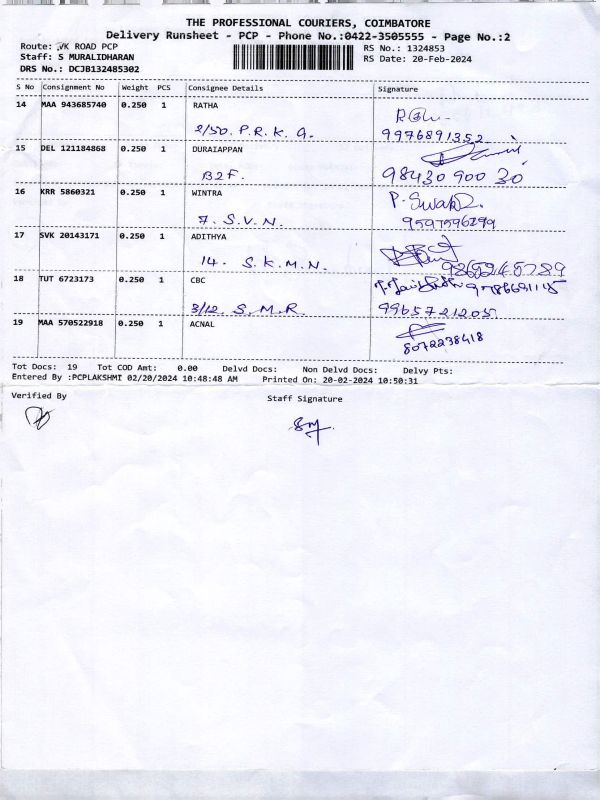 THE PROFESSIONAL COURIERS, COIMBATORE
Delivery Runsheet - PCP - Phone No.:0422-3505555 - Page No.:2
Route: VK ROAD PCP
RS No.: 1324853
Staff: S MURALIDHARAN
RS Date: 20-Feb-2024
DRS No.: DCJB132485302
S No Consignment No Weight PCS Consignee Details Signature
14 MAA 943685740 0.250 1 RATHA
2/50. P.R.K.G. 9976891352
15 DEL 121184868 0.250 1 DURAIAPPAN
B2F. 98430 900 30
16 KRR 5860321 0.250 1 WINTRA
7. S.V.N. 9597596299
17 SVK 20143171 0.250 1 ADITHYA
14. S.K.M.N.
18 TUT 6723173 0.250 1 CBC
3/12. S.M.R. 9965721205
19 MAA 570522918 0.250 1 ACNAL
8072238418
Tot Docs: 19 Tot COD Amt: 0.00 Delvd Docs: Non Delvd Docs: Delvy Pts:
Entered By :PCPLAKSHMI 02/20/2024 10:48:48 AM Printed On: 20-02-2024 10:50:31
Verified By
Staff Signature